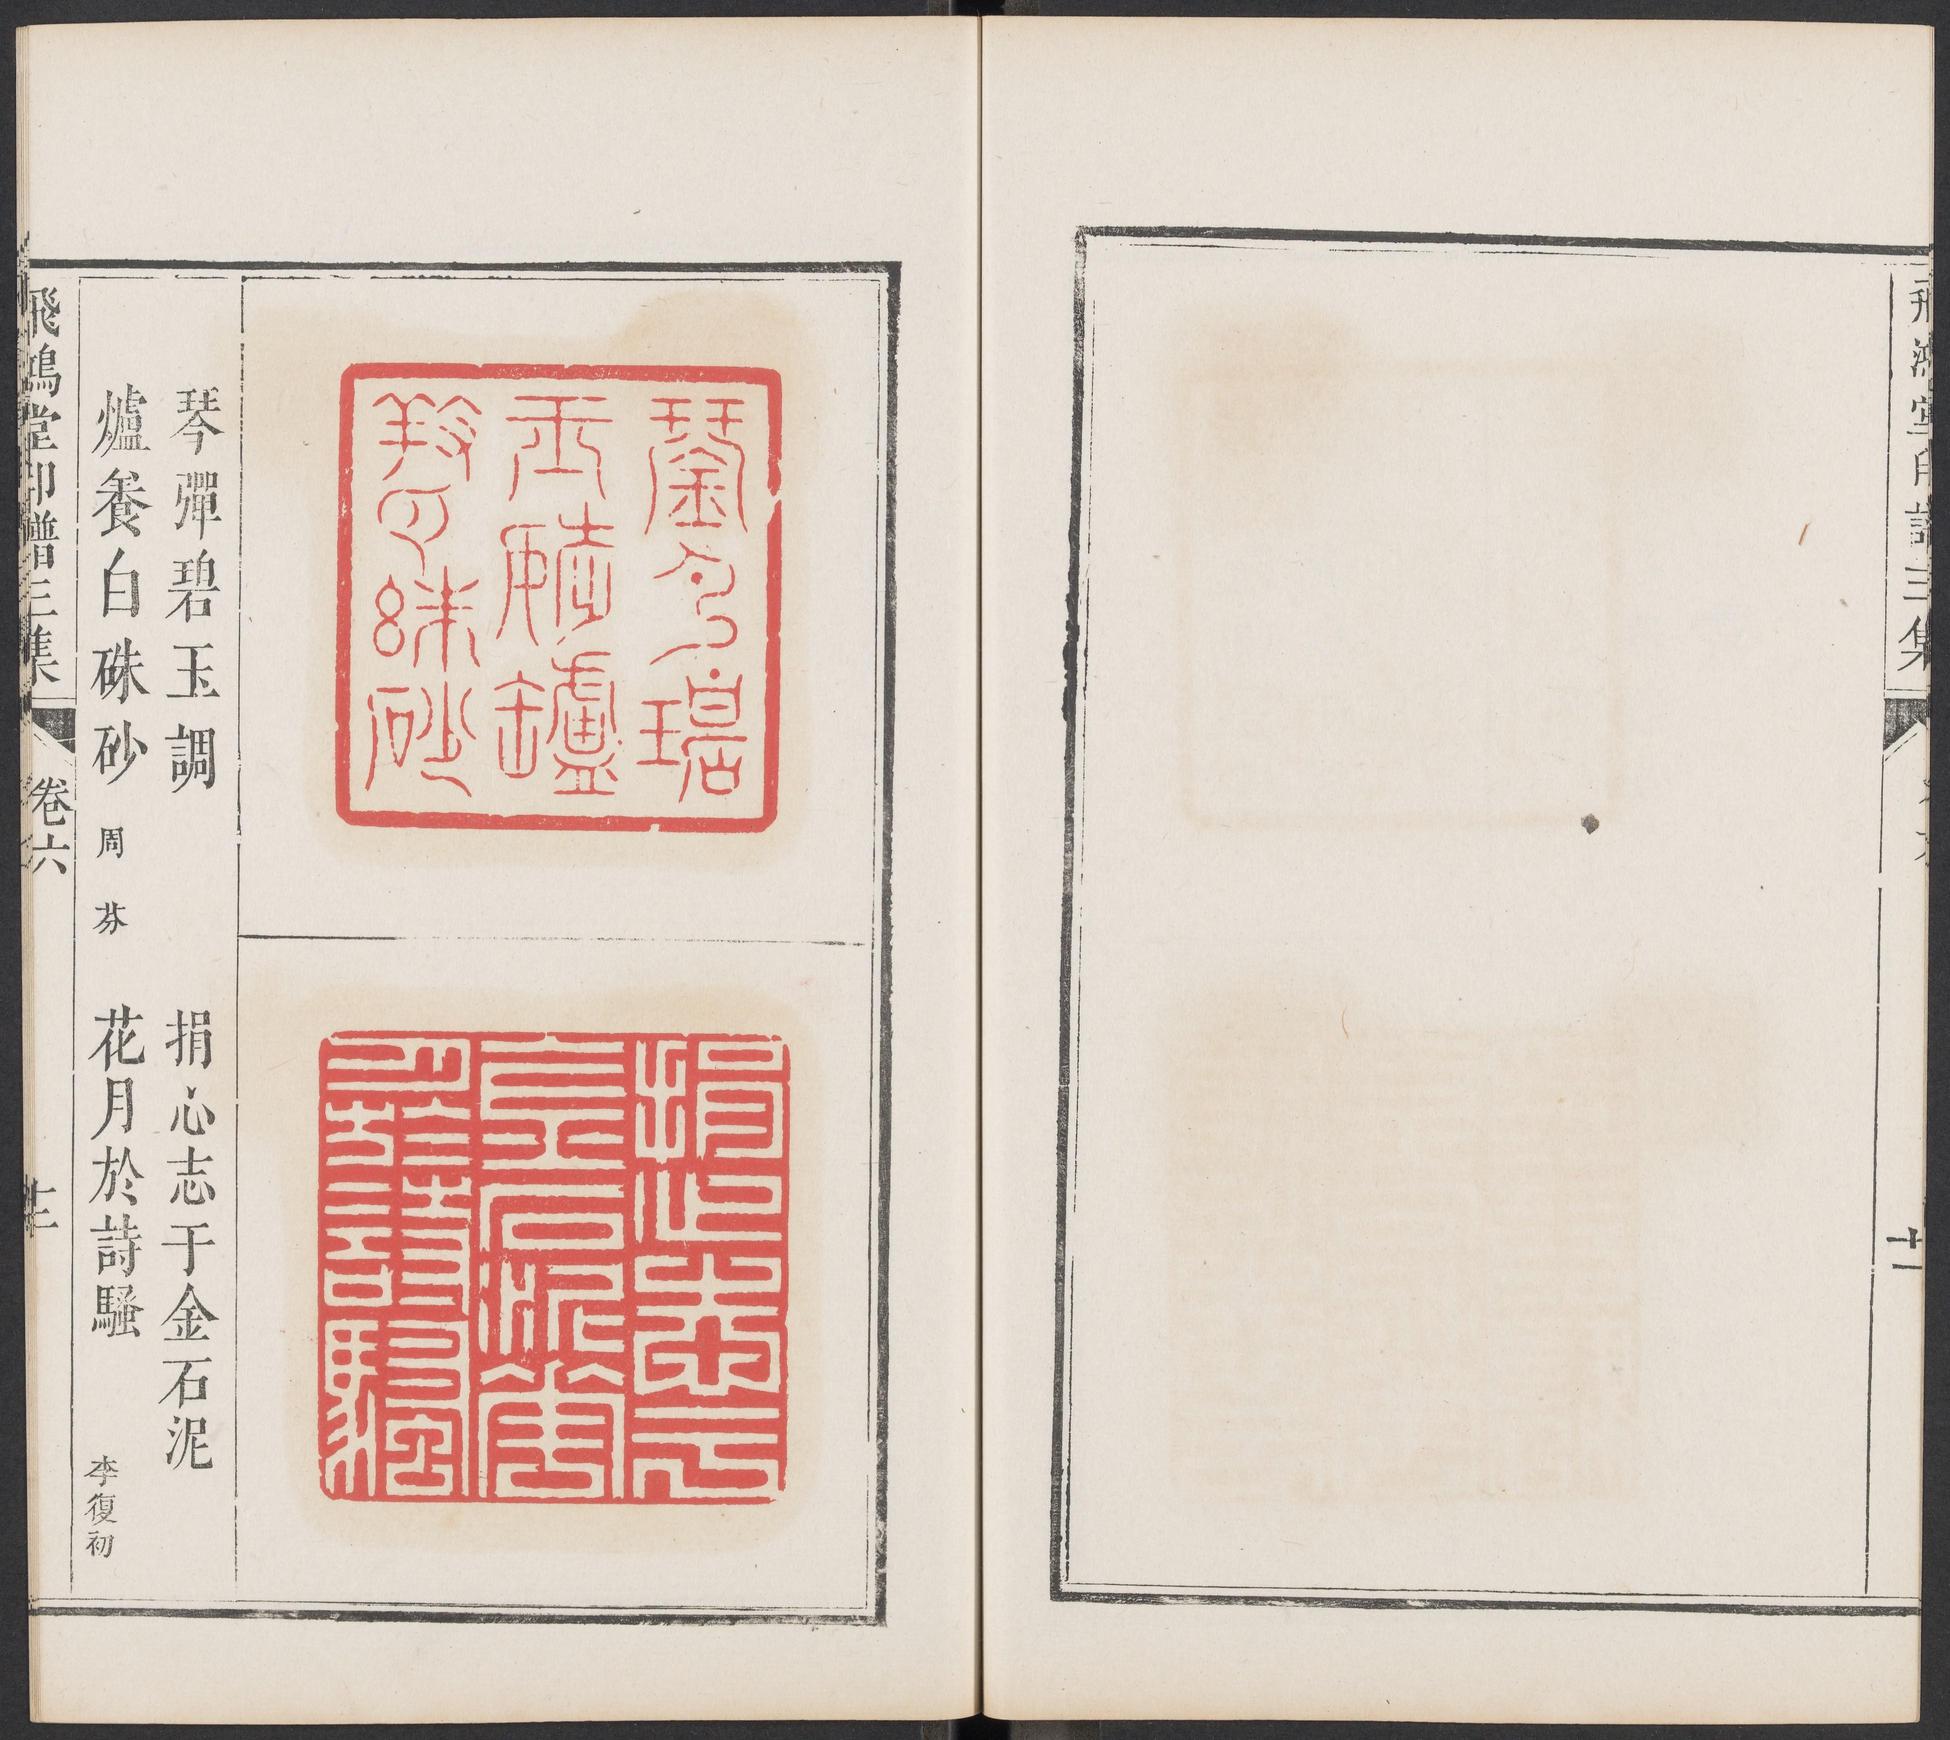 飛鴻堂印譜三集
十一
琴彈碧玉調
爐養白硃砂
周芬
捐心志于金石泥
花月於詩騷
李復初
飛鴻堂印譜三集
卷六